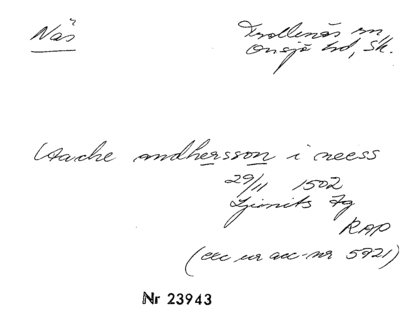 Näs
Trollenäs sn
Onsjö hd, Sk.
Aacke andhersson i neess
29/11 1502
Ljunits hg
RAP
(ur acc-nr 5921)
Nr 23943